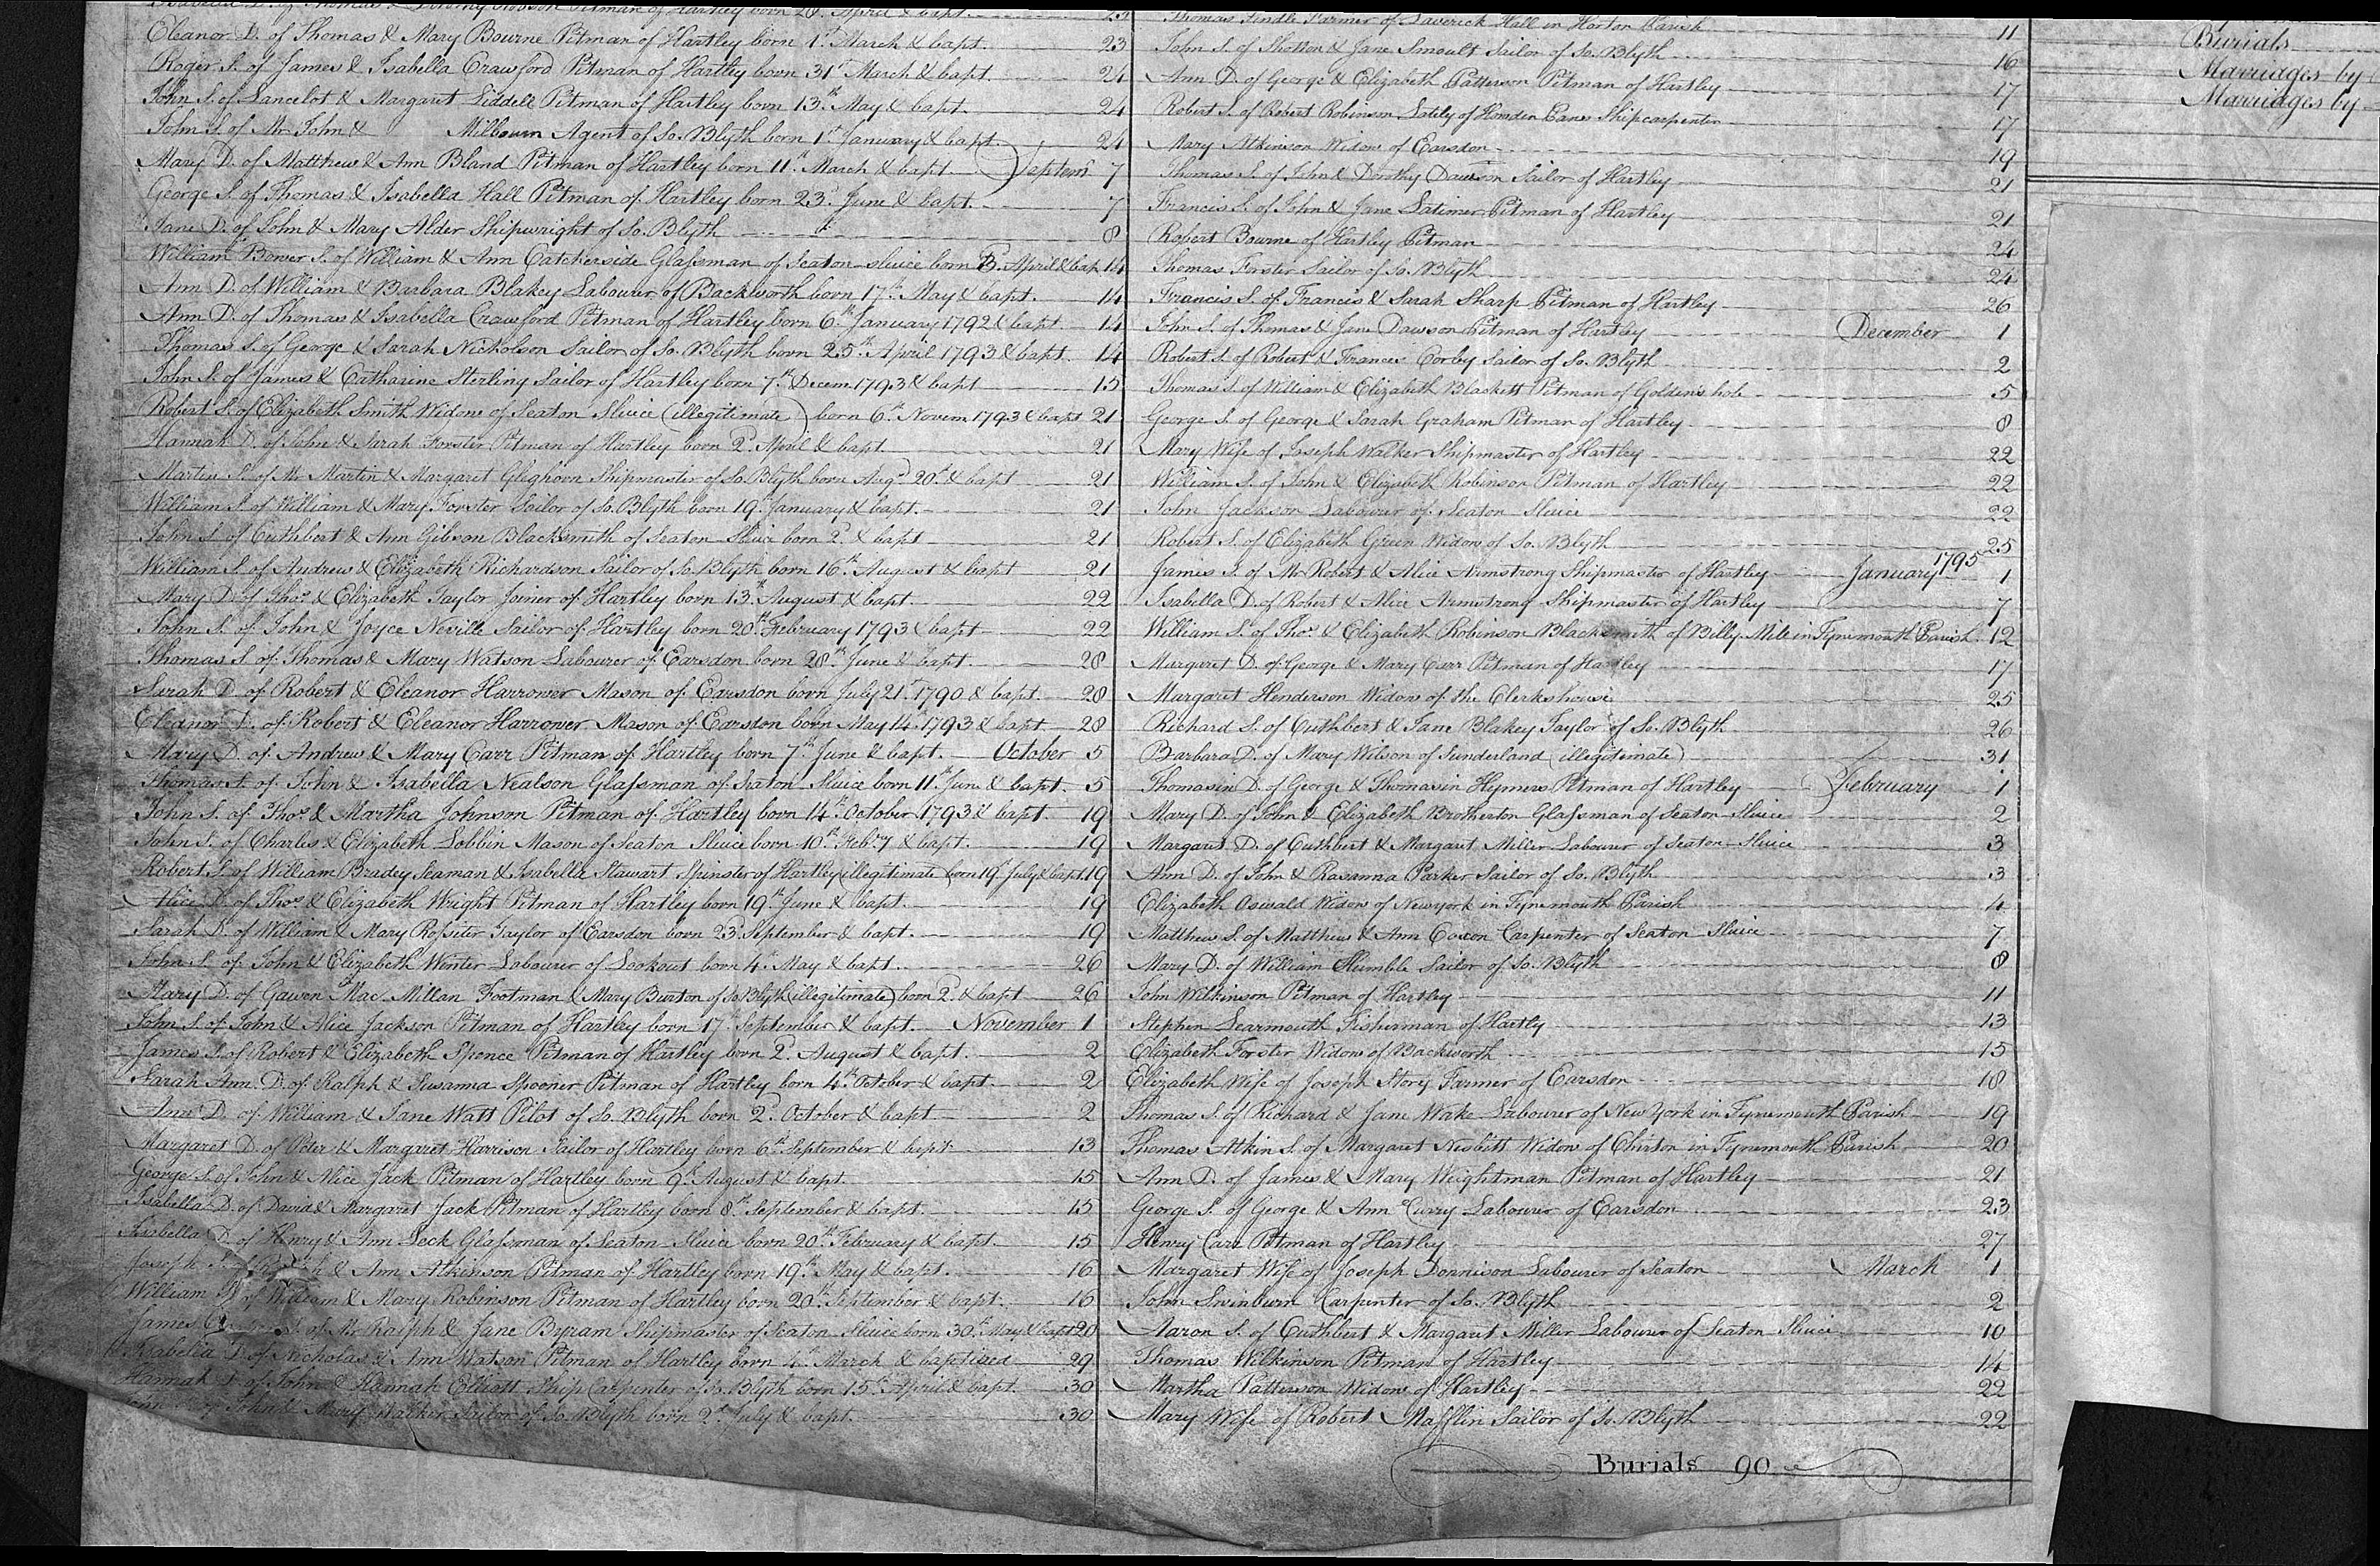 Eleanor D. of Thomas & Mary Bourne Pitman of Hartley born 1st March & bapt. 23
Roger S. of James & Isabella Crawford Pitman of Hartley born 31st March & bapt. 24
John S. of Lancelot & Margaret Liddell Pitman of Hartley born 13th May & bapt. 24
John S. of Mr John & Milbourn Agent of So. Blyth born 1st January & bapt. 24
Mary D. of Matthew & Ann Bland Pitman of Hartley born 11th March & bapt. Septem 7
George S. of Thomas & Isabella Hall Pitman of Hartley born 23d June & bapt. 7
Jane D. of John & Mary Alder Shipwright of So. Blyth 8
William Bower S. of William & Ann Catcherside Glassman of Seaton-sluice born April & bap 14
Ann D. of William & Barbara Blakey Labourer of Backworth born 17th May & bapt. 14
Ann D. of Thomas & Isabella Crawford Pitman of Hartley born 6th January 1792 & bapt 14
Thomas S. of George & Sarah Nicholson Sailor of So. Blyth born 25th April 1793 & bapt. 14
John S. of James & Catharine Sterling Sailor of Hartley born 7th Decem. 1793 & bapt 15
Robert S. of Elizabeth Smith Widow of Seaton Sluice (illegitimate) born 6th Novem 1793 & bapt 21
Hannah D. of John & Sarah Forster Pitman of Hartley born 2d April & bapt. 21
Martin S. of Mr Martin & Margaret Gleghorn Shipmaster of So. Blyth born Augst 20th & bapt 21
William S. of William & Mary Forster Sailor of So. Blyth born 19th January & bapt. 21
John S. of Cuthbert & Ann Gibson Blacksmith of Seaton Sluice born 2d & bapt 21
William S. of Andrew & Elizabeth Richardson Sailor of So. Blyth born 16th August & bapt 21
Mary D. of Thos. & Elizabeth Taylor Joiner of Hartley born 13th August & bapt. 22
John S. of John & Joyce Neville Sailor of Hartley born 20th February 1793 & bapt 22
Thomas S. of Thomas & Mary Watson Labourer of Earsdon born 28th June & bapt. 28
Sarah D. of Robert & Eleanor Harrower Mason of Earsdon born July 21st 1790 & bapt. 28
Eleanor D. of Robert & Eleanor Harrower Mason of Earsdon born May 14 1793 & bapt 28
Mary D. of Andrew & Mary Carr Pitman of Hartley born 7th June & bapt. October 5
Thomas S. of John & Isabella Nealson Glassman of Seaton Sluice born 11th June & bapt. 5
John S. of Thos. & Martha Johnson Pitman of Hartley born 14th October 1793 & bapt. 19
John S. of Charles & Elizabeth Lobbin Mason of Seaton Sluice born 10th Feb:ry & bapt. 19
Robert S. of William Bradey Seaman & Isabella Stewart Spinster of Hartley (illegitimate) born 19th July & bapt. 19
Alice D. of Thos. & Elizabeth Wright Pitman of Hartley born 19th June & bapt. 19
Sarah D. of William & Mary Rossiter Taylor of Earsdon born 23d September & bapt. 19
John S. of John & Elizabeth Winter Labourer of Lookout born 4th May & bapt. 26
Mary D. of Gawen Mac. Millan Footman & Mary Burton of So. Blyth (illegitimate) born 2d & bapt 26
John S. of John & Alice Jackson Pitman of Hartley born 17th September & bapt. November 1
James S. of Robert & Elizabeth Spence Pitman of Hartley born 2d August & bapt. 2
Sarah Ann D. of Ralph & Susanna Spooner Pitman of Hartley born 4th October & bapt. 2
Ann D. of William & Jane Watt Pilot of So. Blyth born 2d October & bapt 2
Margaret D. of Peter & Margaret Harrison Sailor of Hartley born 6th September & bapt 13
George S. of John & Alice Jack Pitman of Hartley born 9th August & bapt. 15
Isabella D. of David & Margaret Jack Pitman of Hartley born 8th September & bapt. 15
Isabella D. of Henry & Ann Leck Glassman of Seaton Sluice born 20th February & bapt. 15
Joseph & Ann Atkinson Pitman of Hartley born 19th May & bapt. 16
William of William & Mary Robinson Pitman of Hartley born 20th September & bapt. 16
James of Mr Ralph & Jane Byram Shipmaster of Seaton Sluice born 30th May & bapt 20
Isabella D. of Nicholas & Ann Watson Pitman of Hartley born 4th March & baptised 29
Hannah D. of John & Hannah Elliott Ship Carpenter of So. Blyth born 15th April & bapt. 30
John & Mary Walker Sailor of So. Blyth born 2d July & bapt. 30
Thomas Tindle Farmer of Laverick Hall in Horton Parish 11
John S. of Shotton & Jane Smoult Sailor of So. Blyth 16
Ann D. of George & Elizabeth Patterson Pitman of Hartley 17
Robert S. of Robert Robinson Lately of Howden Pans Shipcarpenter 17
Mary Atkinson Widow of Earsdon 19
Thomas S. of John & Dorothy Dawson Sailor of Hartley 21
Francis S. of John & Jane Latimer Pitman of Hartley 21
Robert Bourne of Hartley Pitman 24
Thomas Forster Sailor of So. Blyth 24
Francis S. of Francis & Sarah Sharp Pitman of Hartley 26
John S. of Thomas & Jane Dawson Pitman of Hartley December 1
Robert S. of Robert & Frances Corby Sailor of So. Blyth 2
Thomas S. of William & Elizabeth Blackett Pitman of Goldens hole 5
George S. of George & Sarah Graham Pitman of Hartley 8
Mary Wife of Joseph Walker Shipmaster of Hartley 22
William S. of John & Elizabeth Robinson Pitman of Hartley 22
John Jackson Labourer of Seaton Sluice 22
Robert S. of Elizabeth Green Widow of So. Blyth 25
James S. of Mr Robert & Alice Armstrong Shipmaster of Hartley January 1795 1
Isabella D. of Robert & Alice Armstrong Shipmaster of Hartley 7
William S. of Thos. & Elizabeth Robinson Blacksmith of Billy Mill in Tynemouth Parish 12
Margaret D. of George & Mary Carr Pitman of Hartley 17
Margaret Henderson Widow of the Clerkshouse 25
Richard S. of Cuthbert & Jane Blakey Taylor of So. Blyth 26
Barbara D. of Mary Wilson of Sunderland (illegitimate) 31
Thomasin D. of George & Thomasin Hymers Pitman of Hartley February 1
Mary D. of John & Elizabeth Brotherton Glassman of Seaton Sluice 2
Margaret D. of Cuthbert & Margaret Miller Labourer of Seaton Sluice 3
Ann D. of John & Rasanna Parker Sailor of So. Blyth 3
Elizabeth Oswald Widow of Newyork in Tynemouth Parish 4
Matthew S. of Matthew & Ann Coxon Carpenter of Seaton Sluice 7
Mary D. of William Humble Sailor of So. Blyth 8
John Wilkinson Pitman of Hartley 11
Stephen Learmouth Fisherman of Hartly 13
Elizabeth Forster Widow of Backworth 15
Elizabeth Wife of Joseph Story Farmer of Earsdon 18
Thomas S. of Richard & Jane Wake Labourer of New York in Tynemouth Parish 19
Thomas Atkin S. of Margaret Nesbitt Widow of Chirton in Tynemouth Parish 20
Ann D. of James & Mary Weightman Pitman of Hartley 21
George S. of George & Ann Curry Labourer of Earsdon 23
Henry Carr Pitman of Hartley 27
Margaret Wife of Joseph Donnison Labourer of Seaton March 1
John Swinburn Carpenter of So. Blyth 2
Aaron S. of Cuthbert & Margaret Miller Labourer of Seaton Sluice 10
Thomas Wilkinson Pitman of Hartley 14
Martha Patterson Widow of Hartley 22
Mary Wife of Robert Mafflin Sailor of So. Blyth 22
Burials 90
Burials
Marriages by
Marriages by